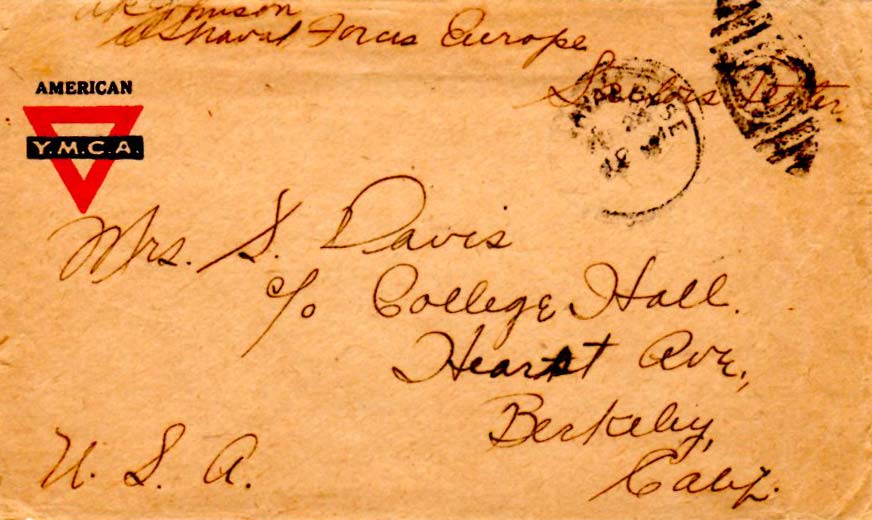 Johnson
US Naval Forces Europe
Sailors Letter
AMERICAN
Y.M.C.A.
Mrs. S. Davis
c/o College Hall.
Hearst Ave.,
Berkeley,
Calif.
U. S. A.